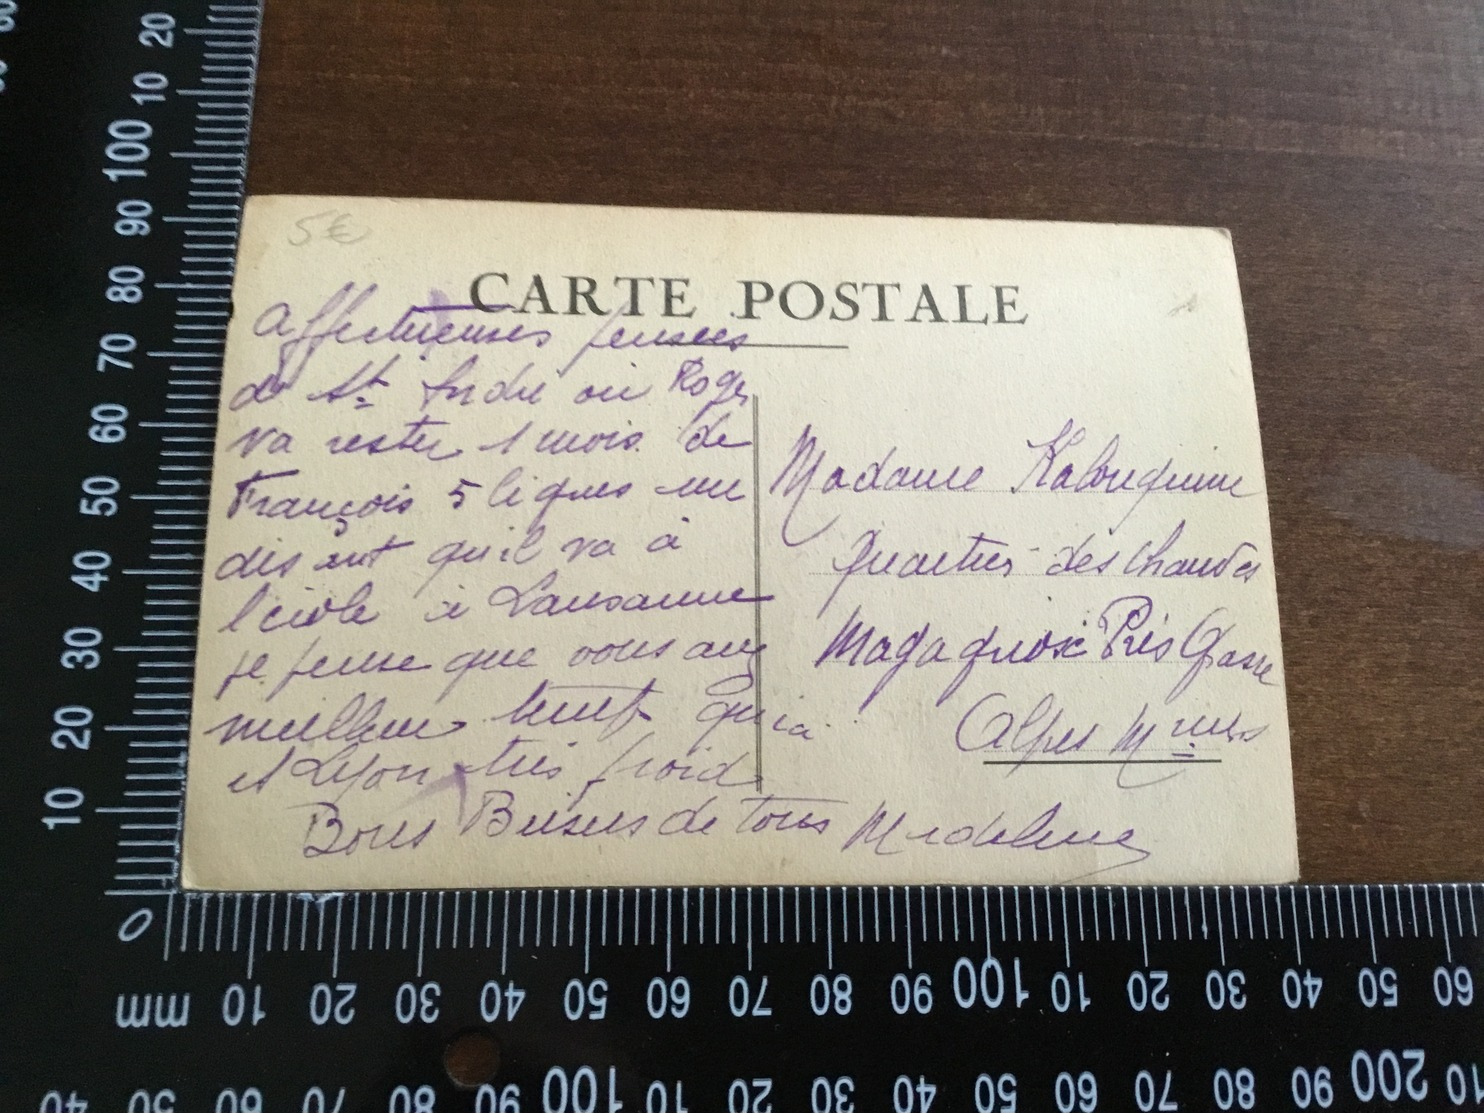 5€
CARTE POSTALE
Affectueuses pensées
de St André où Roger
va rester 1 mois. de
François 5 lignes me
disant qu'il va à
l'école à Lausanne
je pense que vous avez
meilleur temps qu'ici à
et Lyon très froid
Bons Baisers de tous Madeleine
Madame Kalouguine
Quartier des Chaudes
Magagnosc Près Grasse
Alpes Mmes
0
10
20
30
40
50
60
70
80
90
100
10
20
mm 10 20 30 40 50 60 70 80 90 100 10 20 30 40 50 60
40 50 60 70 80 90 100 10 20 30 40 50 60 70 80 90 200 10